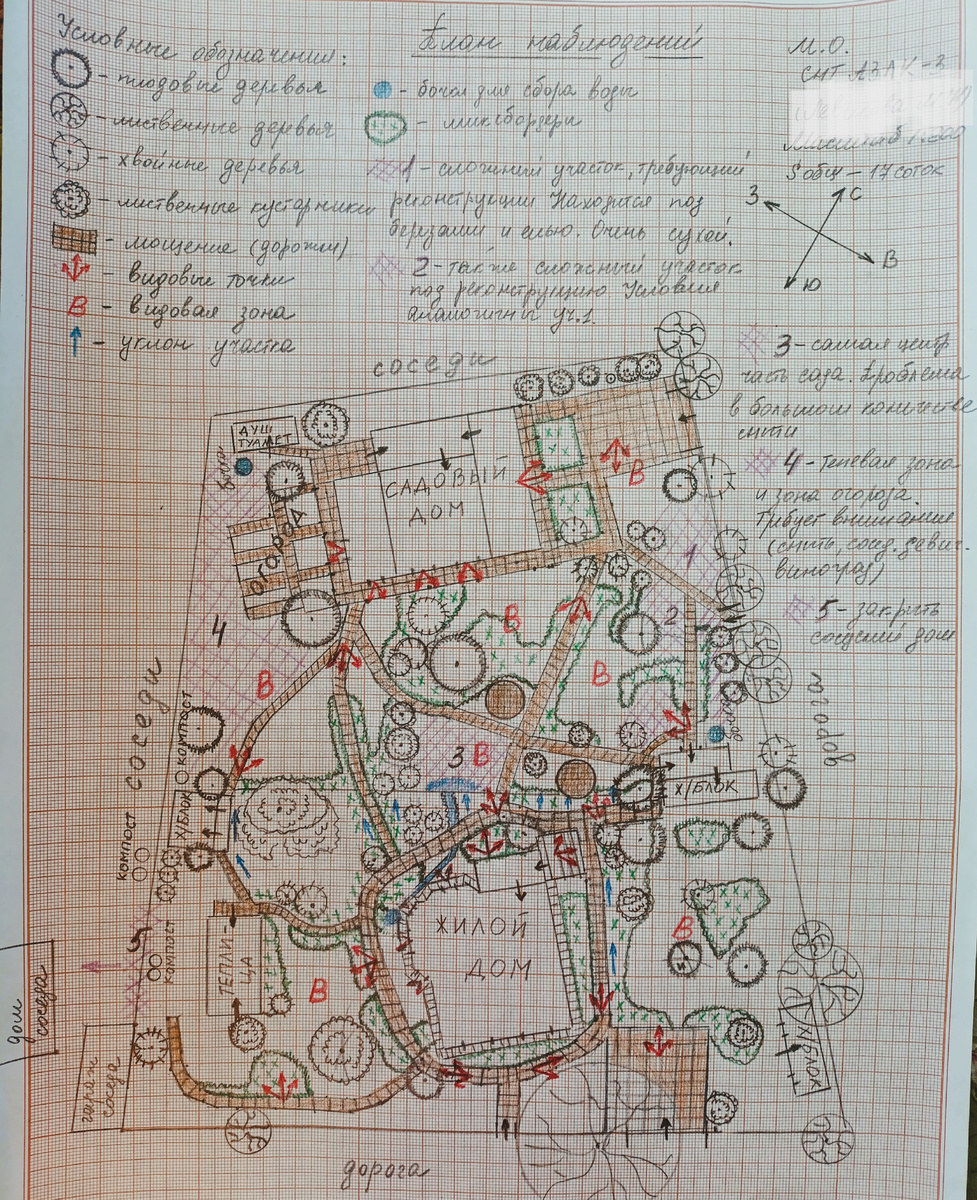 Условные обозначения:
План наблюдений
М.О.
СНТ АЗАК-3
Масштаб 1:200
Sобщ – 17 соток
- плодовые деревья
- лиственные деревья
- хвойные деревья
- лиственные кустарники
- мощение (дорожки)
- видовые точки
В - видовая зона
- уклон участка
- бочки для сбора воды
- миксбордеры
1 - сложный участок, требующий
реконструкции. Находится под
березами и елью. Очень сухой.
2 - также сложный участок
под реконструкцию. Условия
аналогичны уч.1.
З
С
В
Ю
3 - самая центр
часть сада. Проблема
в большом количестве
сныти
4 - теневая зона
и зона огорода.
Требует внимания
(сныть, сосед. девич.
виноград)
5 - закрыть
соседний дом
соседи
ДУШ
ТУАЛЕТ
САДОВЫЙ
ДОМ
В
ОГОРОД
1
2
4
В
В
В
соседи
дорога
компост
3
В
Х/БЛОК
Х/БЛОК
компост
ЖИЛОЙ
ДОМ
В
5
компост
ТЕПЛИ-
ЦА
В
дом
соседа
гараж
соседа
Х/БЛОК
дорога